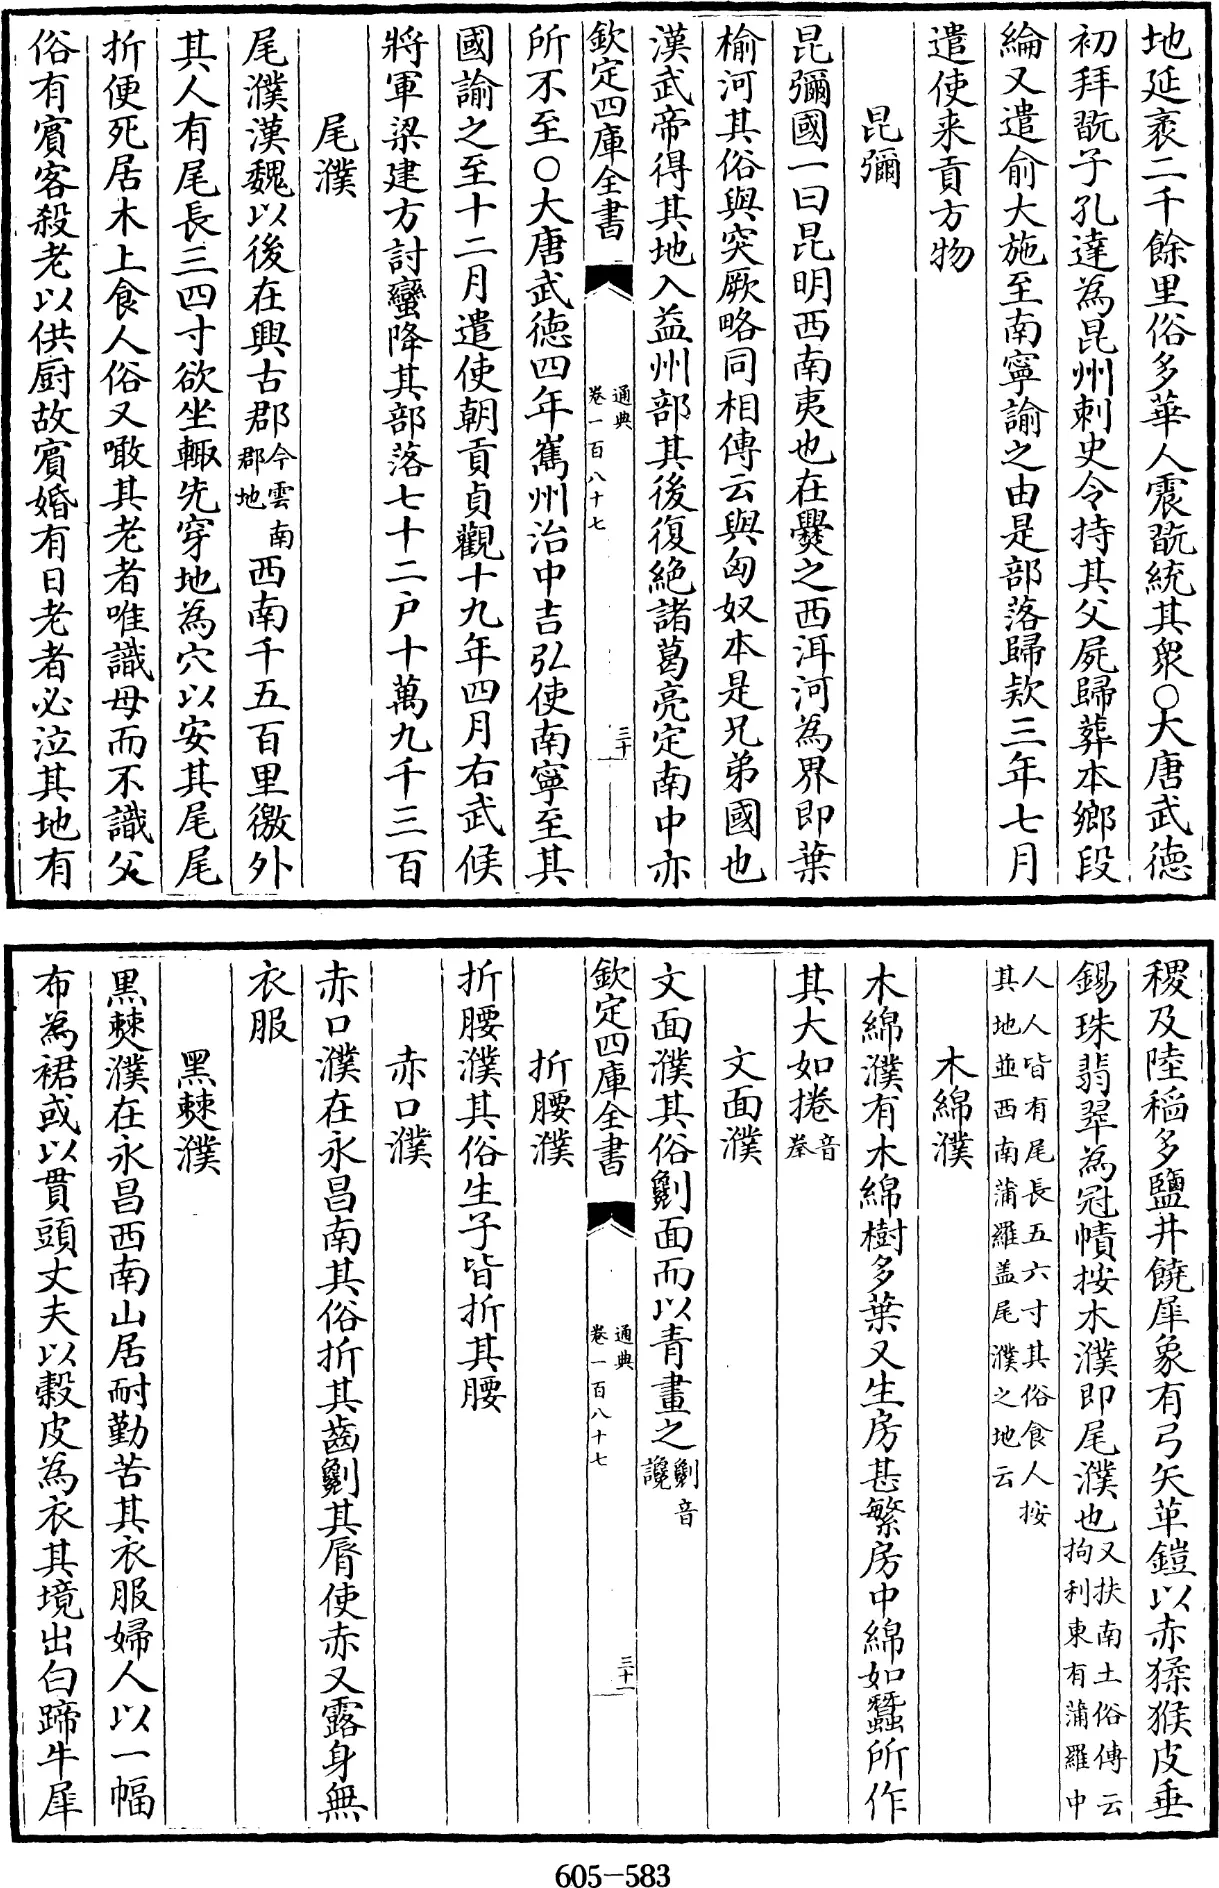 地延袤二千餘里俗多華人震翫統其衆○大唐武德
初拜翫子孔達為昆州刺史令持其父屍歸葬本鄉段
綸又遣俞大施至南寧諭之由是部落歸欵三年七月
遣使来貢方物
昆彌
昆彌國一曰昆明西南夷也在爨之西洱河為界即葉
榆河其俗與突厥略同相傳云與匈奴本是兄弟國也
漢武帝得其地入益州部其後復絶諸葛亮定南中亦
欽定四庫全書
通典
卷一百八十七
三十
所不至○大唐武德四年嶲州治中吉弘使南寧至其
國諭之至十二月遣使朝貢貞觀十九年四月右武候
將軍梁建方討蠻降其部落七十二户十萬九千三百
尾濮
尾濮漢魏以後在興古郡今雲南郡地西南千五百里徼外
其人有尾長三四寸欲坐輙先穿地為穴以安其尾尾
折便死居木上食人俗又噉其老者唯識母而不識父
俗有賓客殺老以供厨故賓婚有日老者必泣其地有
稷及陸稻多鹽井饒犀象有弓矢革鎧以赤猱猴皮垂
錫珠翡翠為冠幘按木濮即尾濮也又扶南土俗傳云拘利東有蒲羅中
人人皆有尾長五六寸其俗食人按其地並西南蒲羅盖尾濮之地云
木綿濮
木綿濮有木綿樹多葉又生房甚繁房中綿如蠶所作
其大如捲音拳
文面濮
文面濮其俗劖面而以青畫之劖音讒
欽定四庫全書
通典
卷一百八十七
三十一
折腰濮
折腰濮其俗生子皆折其腰
赤口濮
赤口濮在永昌南其俗折其齒劖其脣使赤又露身無
衣服
黑僰濮
黑僰濮在永昌西南山居耐勤苦其衣服婦人以一幅
布為裙或以貫頭丈夫以榖皮為衣其境出白蹄牛犀
605-583